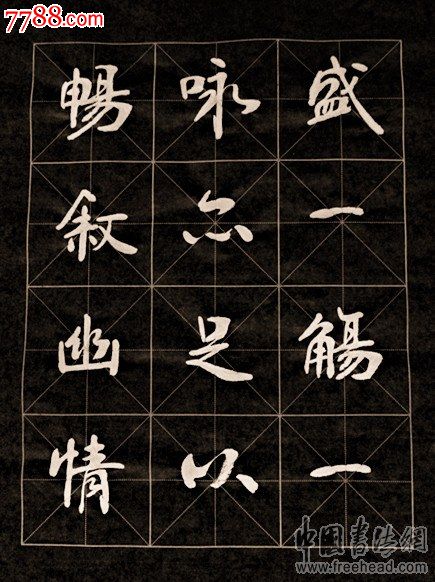 7788.com
盛一觴一
咏亦足以
暢叙幽情
中国书法網
www.freehead.com